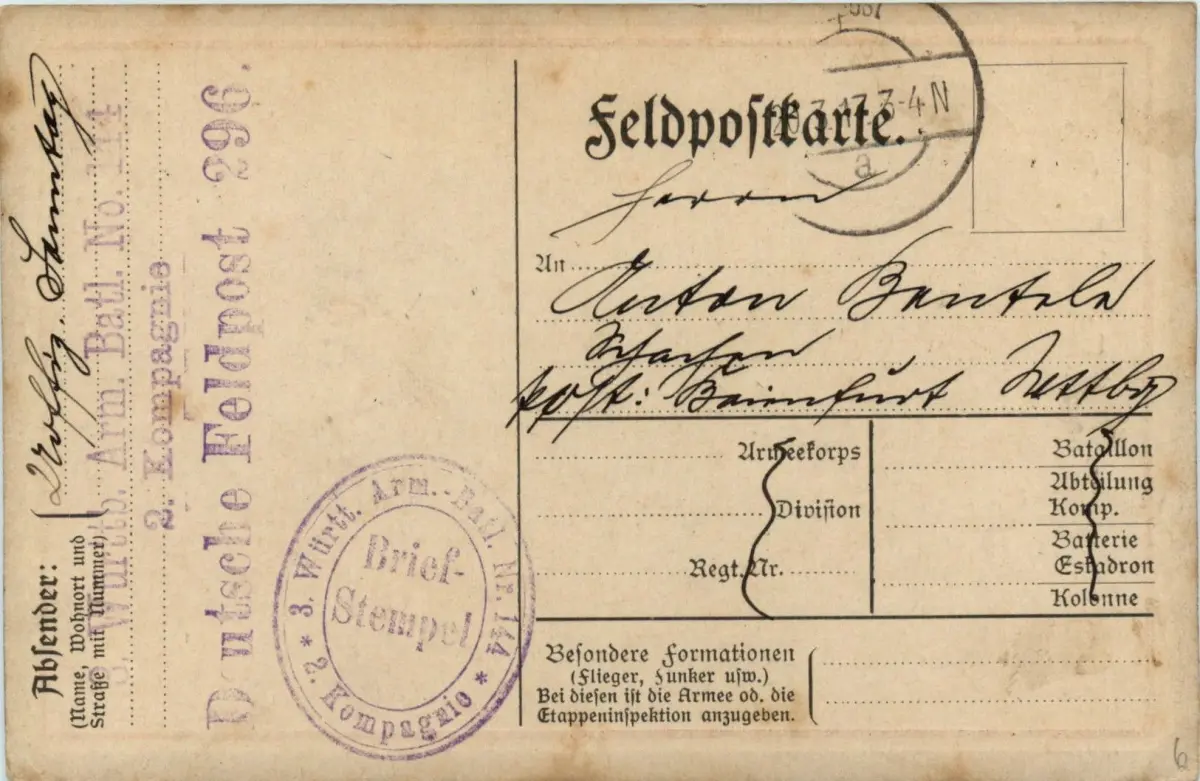 Feldpostkarte.
3-4 N
a
Herrn
An Anton Bentele
Schachen
Post: Baienfurt Wttbg
Armeekorps
Division
Regt. Nr.
Bataillon
Abteilung
Komp.
Batterie
Eskadron
Kolonne
Besondere Formationen
(Flieger, Funker usw.)
Bei diesen ist die Armee od. die
Etappeninspektion anzugeben.
Absender:
(Name, Wohnort und
Straße mit Nummer)
3. Württb. Arm. Batl. No. 144
2. Kompagnie
Deutsche Feldpost 296.
* 3. Württ. Arm.-Batl. Nr. 144 *
2. Kompagnie
Brief-
Stempel
6